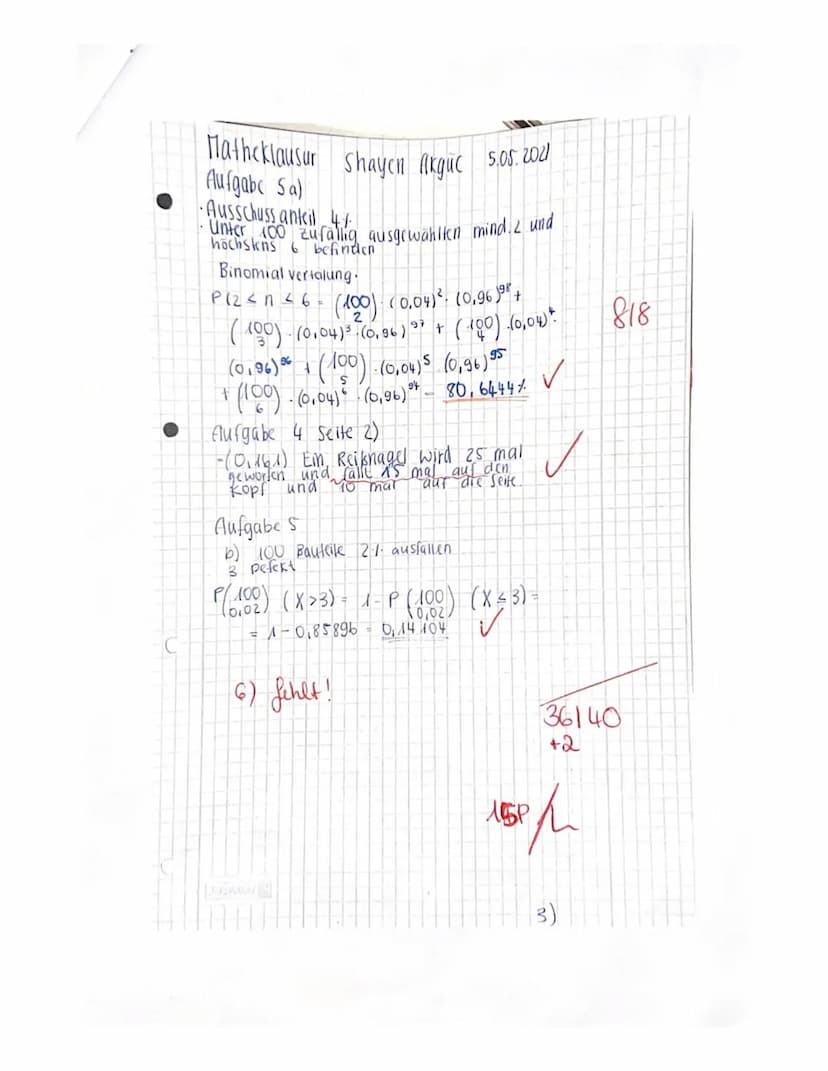 Matheklausur Shayen Akgüc 5.05.2021
Aufgabe 5a)
· Ausschussanteil 4%
· Unter 100 zufällig ausgewählten mind. 2 und
höchstens 6 befinden
Binomial vertalung.
P(2 ≤ n ≤ 6 = (100 2) · (0,04)² · (0,96)⁹⁸ +
(100 3) · (0,04)³ · (0,96)⁹⁷ + (100 4) · (0,04)⁴ ·
8/8
(0,96)⁹⁶ + (100 5) · (0,04)⁵ · (0,96)⁹⁵
+ (100 6) · (0,04)⁶ · (0,96)⁹⁴ = 80,6444% ✓
Aufgabe 4 Seite 2)
-(0,161) Ein Reißnagel wird 25 mal
geworfen und fällt 15 mal auf den ✓
Kopf und 10 mal auf die Seite.
Aufgabe 5
b) 100 Bauteile 2% ausfallen
3 Defekt
P(100 0,02) (X>3) = 1 - P(100 0,02) (X ≤ 3) =
= 1 - 0,85896 = 0,14104 ✓
6) fehlt!
36/40
+2
15P
3)